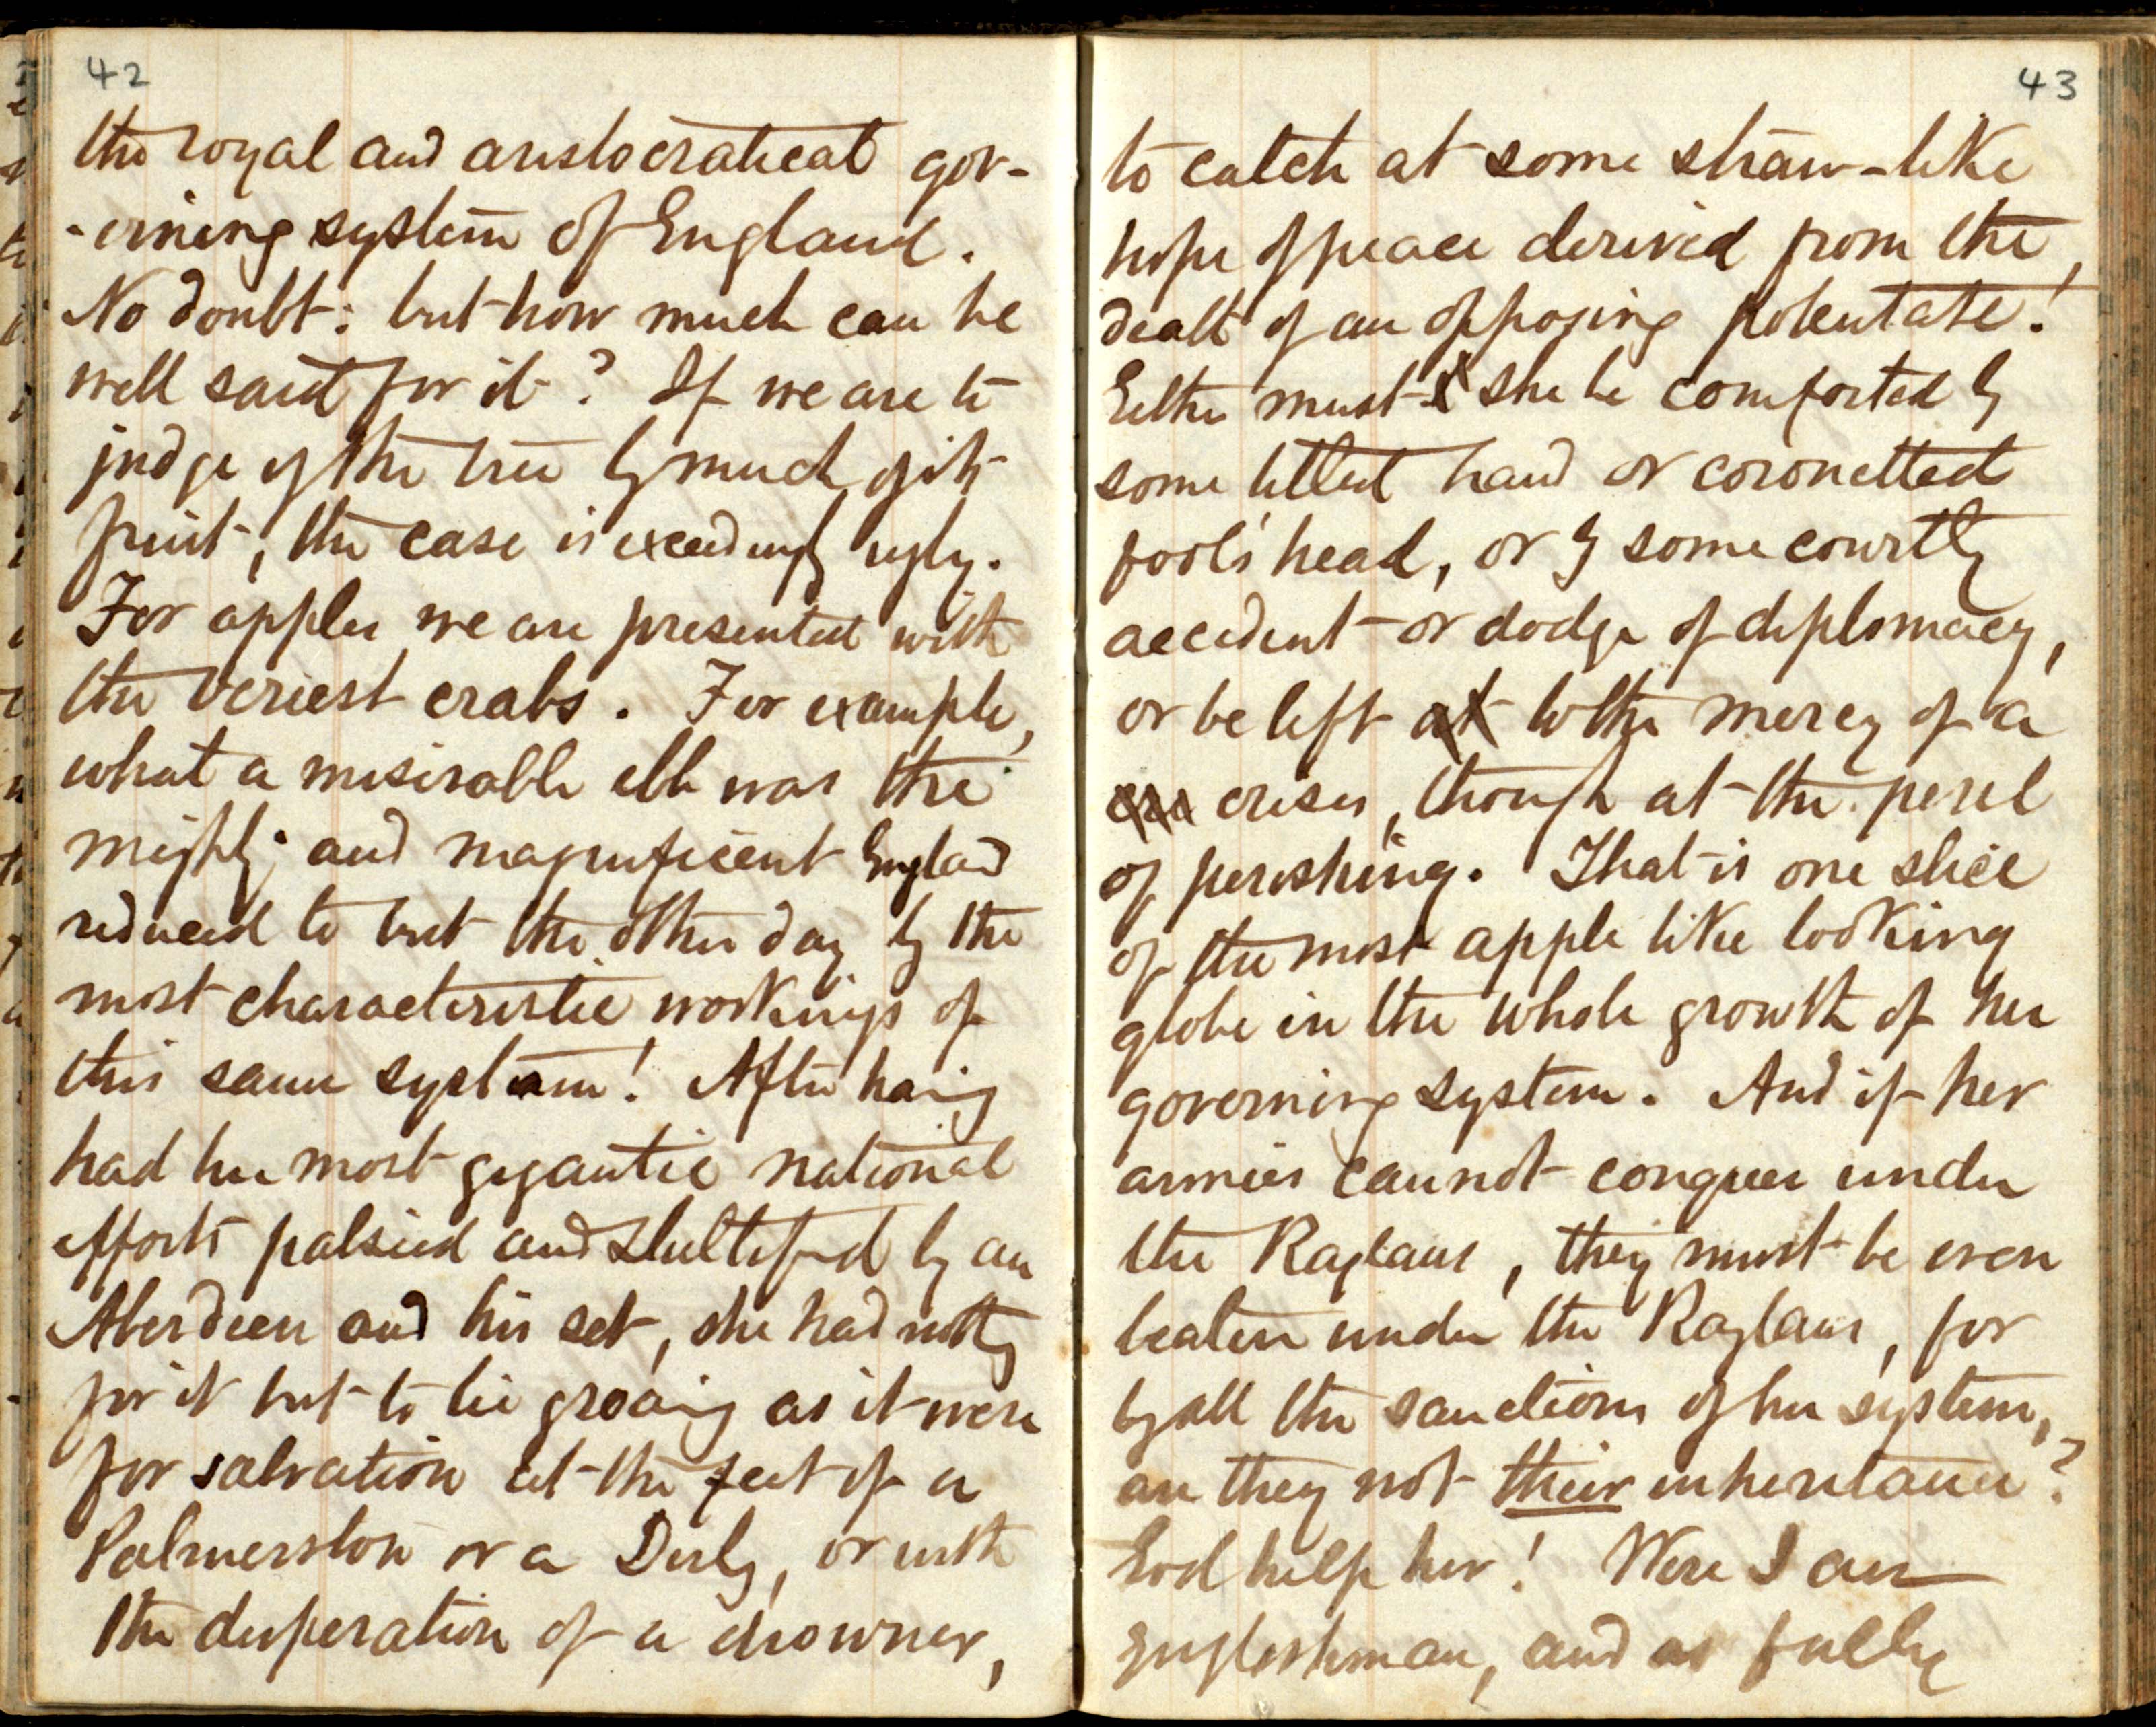 42
the royal and aristocratical gov-
-erning system of England.
No doubt: but how much can be
well said for it? If we are to
judge of the tree by much of its
fruit, the case is exceedingly ugly.
For apples we are presented with
the veriest crabs. For example,
what a miserable ebb was the
mighty and magnificent England
reduced to but the other day by the
most characteristic workings of
this same system! After having
had her most gigantic national
efforts palsied and stultified by an
Aberdeen and his set, she had nothing
for it but to lie groaning as it were
for salvation at the feet of a
Palmerston or a Derby, or with
the desperation of a drowner,
43
to catch at some straw-like
hope of peace derived from the
death of an opposing potentate!
Either must she be comforted by
some titled hand or coronetted
fool's head, or by some courtly
accident or dodge of diplomacy,
or be left at to the mercy of a
crisis, though at the peril
of perishing. That is one slice
of the most apple like looking
globe in the whole growth of her
governing system. And if her
armies cannot conquer under
the Raglans, they must be even
beaten under the Raglans, for
by all the sanctions of her system,
are they not their inheritance?
God help her! Were I an
Englishman, and as fully